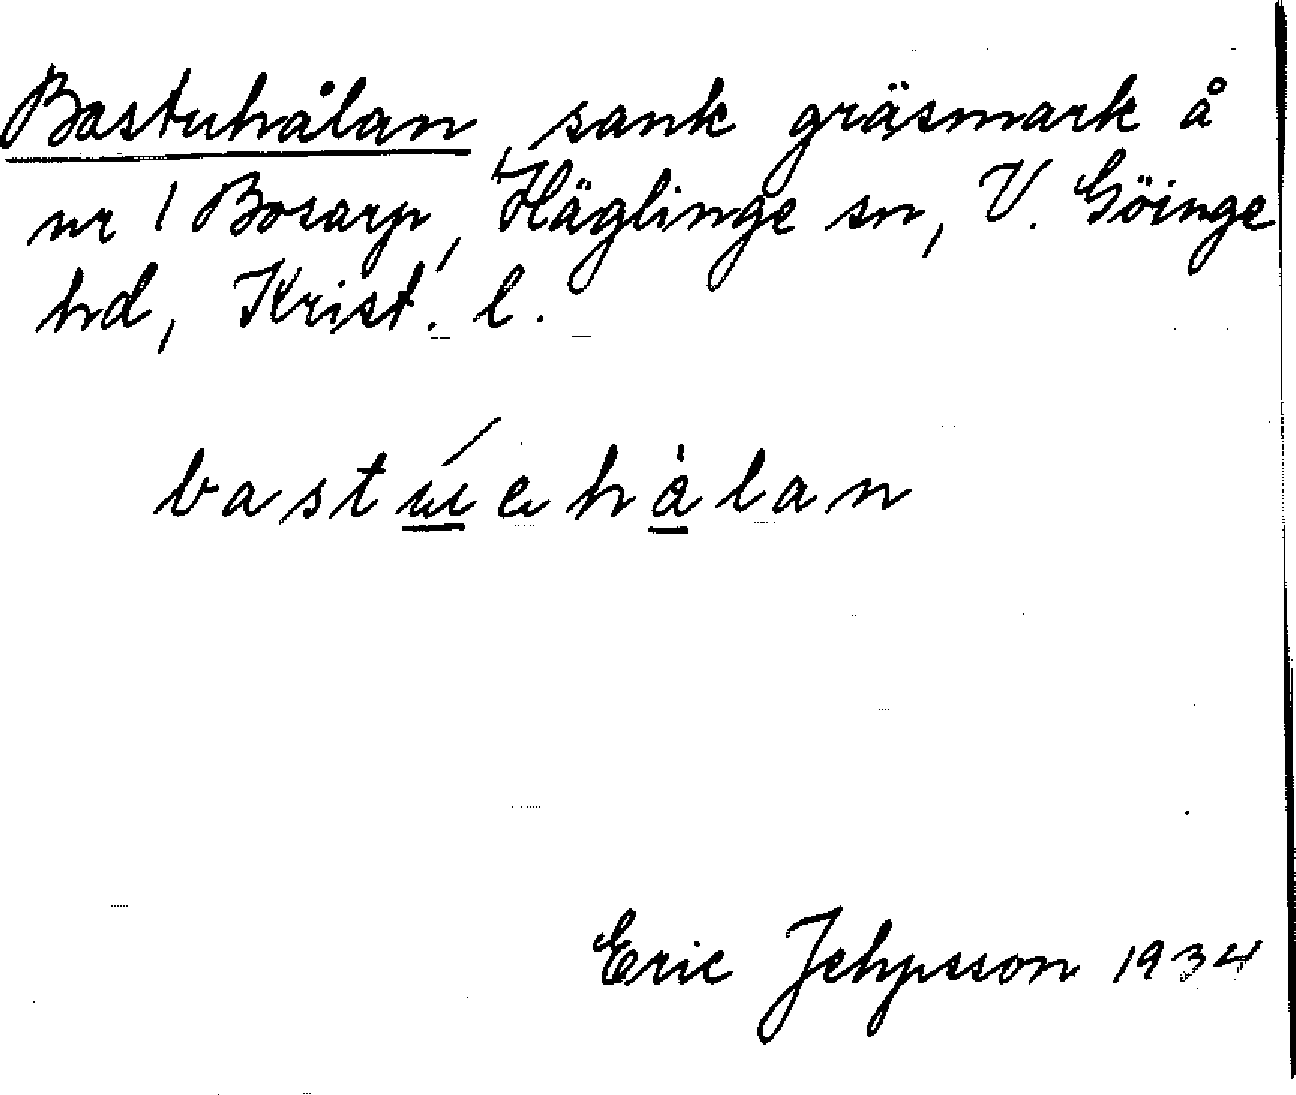 Bastuhålan, sank gräsmark å
nr 1 Bosarp, Häglinge sn, V. Göinge
hd, Krist. l.
bastúehàlan
Eric Jehpsson 1934